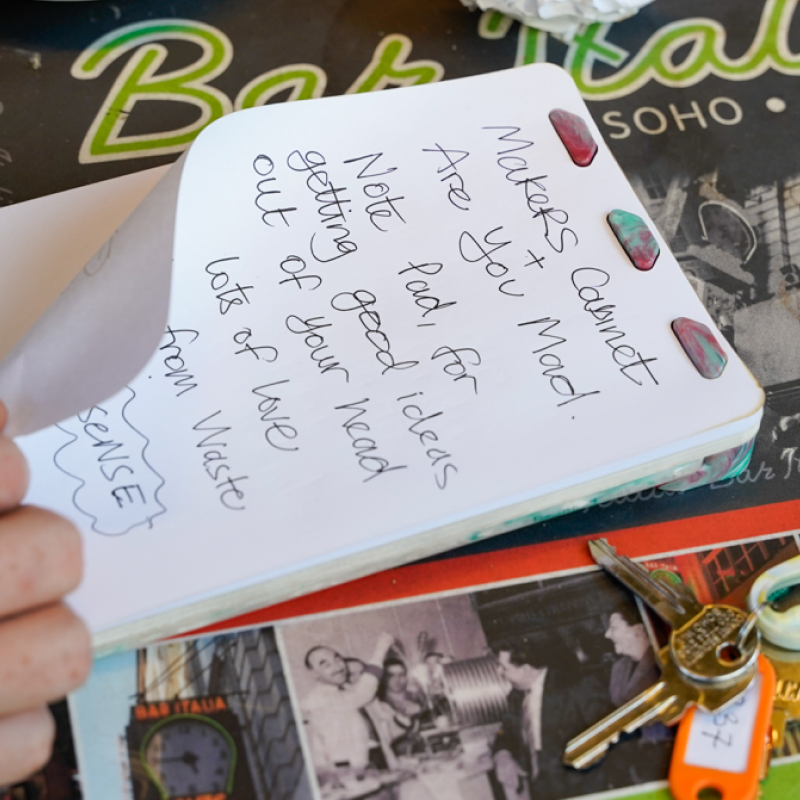 Bar Ital
SOHO •
Makers Cabinet
+
Are You Mad.
Note Pad, for
getting good ideas
out of your head
lots of love
from Waste
SENSE
Bar It
BAR ITALIA
37